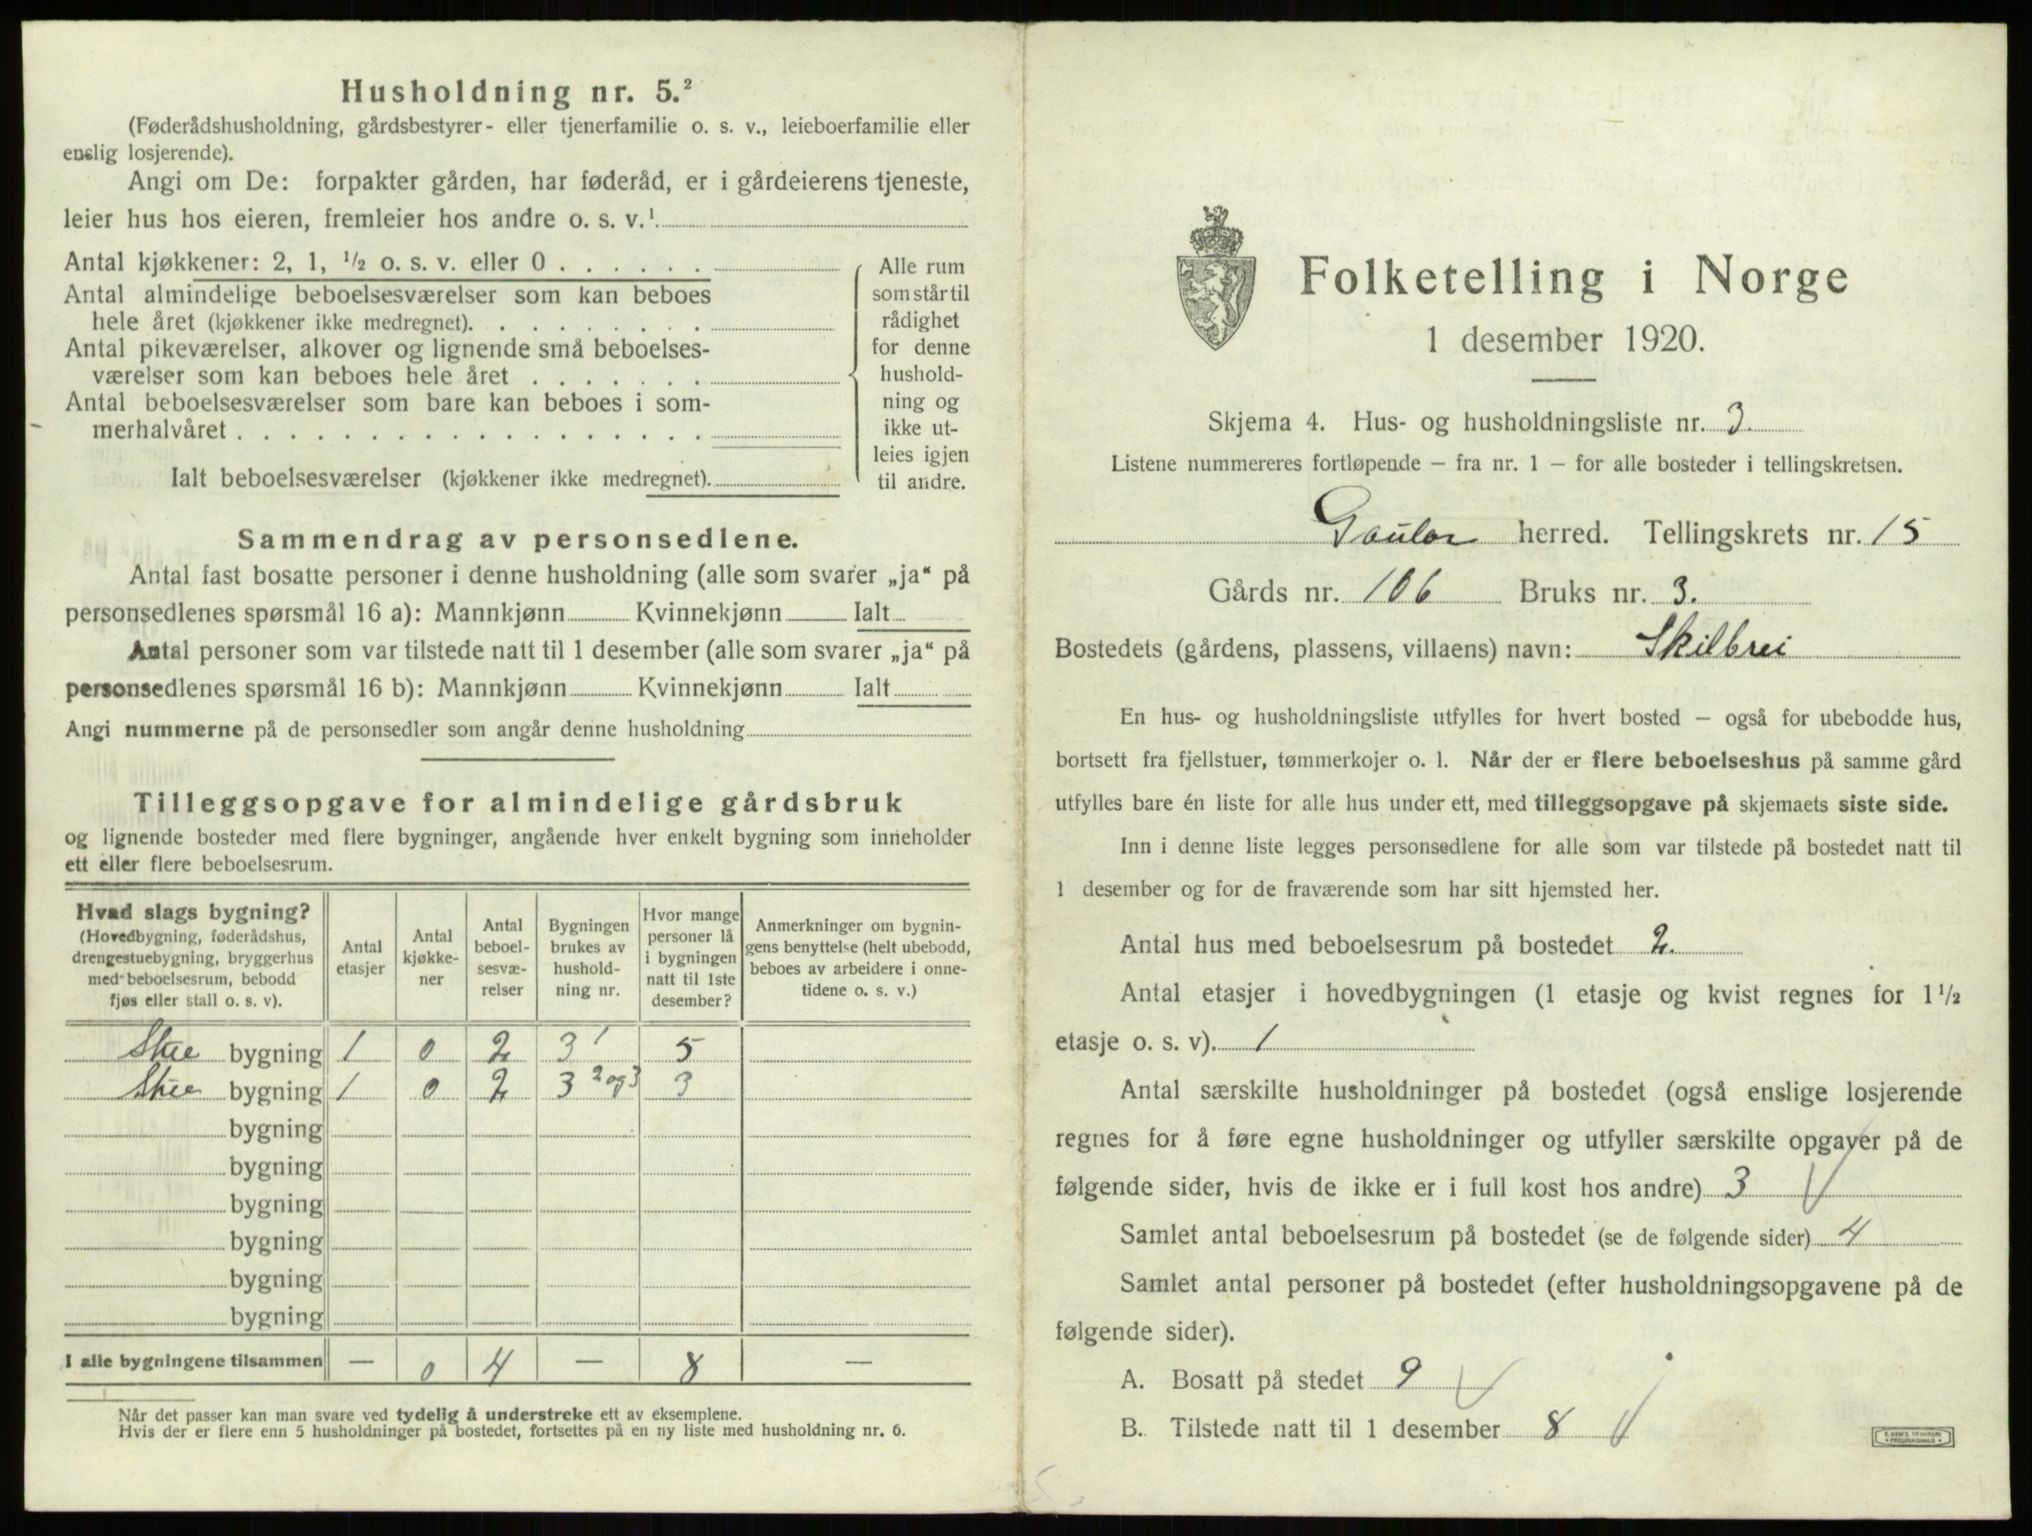 Husholdning nr. 5.²
(Føderådshusholdning, gårdsbestyrer- eller tjenerfamilie o. s. v., leieboerfamilie eller
enslig losjerende).
Angi om De: forpakter gården, har føderåd, er i gårdeierens tjeneste,
leier hus hos eieren, fremleier hos andre o. s. v.¹
Antal kjøkkener: 2, 1, ½ o. s. v. eller 0 . . . . . .
Antal almindelige beboelsesværelser som kan beboes
hele året (kjøkkener ikke medregnet). . . . . . . . .
Antal pikeværelser, alkover og lignende små beboelses-
værelser som kan beboes hele året . . . . . . .
Antal beboelsesværelser som bare kan beboes i som-
merhalvåret . . . . . . . . . . . . . . . . . .
Ialt beboelsesværelser (kjøkkener ikke medregnet).
Alle rum
som står til
rådighet
for denne
hushold-
ning og
ikke ut-
leies igjen
til andre.
Sammendrag av personsedlene.
Antal fast bosatte personer i denne husholdning (alle som svarer „ja“ på
personsedlenes spørsmål 16 a): Mannkjønn Kvinnekjønn Ialt
Antal personer som var tilstede natt til 1 desember (alle som svarer „ja“ på
personsedlenes spørsmål 16 b): Mannkjønn Kvinnekjønn Ialt
Angi nummerne på de personsedler som angår denne husholdning
Tilleggsopgave for almindelige gårdsbruk
og lignende bosteder med flere bygninger, angående hver enkelt bygning som inneholder
ett eller flere beboelsesrum.
Hvad slags bygning?
(Hovedbygning, føderådshus,
drengestuebygning, bryggerhus
med beboelsesrum, bebodd
fjøs eller stall o. s. v).
Antal
etasjer
Antal
kjøkke-
ner
Antal
beboel-
sesvæ-
relser
Bygningen
brukes av
hushold-
ning nr.
Hvor mange
personer lå
i bygningen
natt til 1ste
desember?
Anmerkninger om bygnin-
gens benyttelse (helt ubebodd,
beboes av arbeidere i onne-
tidene o. s. v.)
Stue bygning 1 0 2 3 1 5
Stue bygning 1 0 2 3 2 og 3 3
bygning
bygning
bygning
bygning
bygning
bygning
I alle bygningene tilsammen — 0 4 — 8 —
Når det passer kan man svare ved tydelig å understreke ett av eksemplene.
Hvis der er flere enn 5 husholdninger på bostedet, fortsettes på en ny liste med husholdning nr. 6.
Folketelling i Norge
1 desember 1920.
Skjema 4. Hus- og husholdningsliste nr. 3.
Listene nummereres fortløpende – fra nr. 1 – for alle bosteder i tellingskretsen.
Gaular herred. Tellingskrets nr. 15
Gårds nr. 106 Bruks nr. 3.
Bostedets (gårdens, plassens, villaens) navn: Skilbrei
En hus- og husholdningsliste utfylles for hvert bosted – også for ubebodde hus,
bortsett fra fjellstuer, tømmerkojer o. l. Når der er flere beboelseshus på samme gård
utfylles bare én liste for alle hus under ett, med tilleggsopgave på skjemaets siste side.
Inn i denne liste legges personsedlene for alle som var tilstede på bostedet natt til
1 desember og for de fraværende som har sitt hjemsted her.
Antal hus med beboelsesrum på bostedet 2.
Antal etasjer i hovedbygningen (1 etasje og kvist regnes for 1½
etasje o. s. v). 1
Antal særskilte husholdninger på bostedet (også enslige losjerende
regnes for å føre egne husholdninger og utfyller særskilte opgaver på de
følgende sider, hvis de ikke er i full kost hos andre) 3
Samlet antal beboelsesrum på bostedet (se de følgende sider) 4
Samlet antal personer på bostedet (efter husholdningsopgavene på de
følgende sider).
A. Bosatt på stedet 9
B. Tilstede natt til 1 desember 8